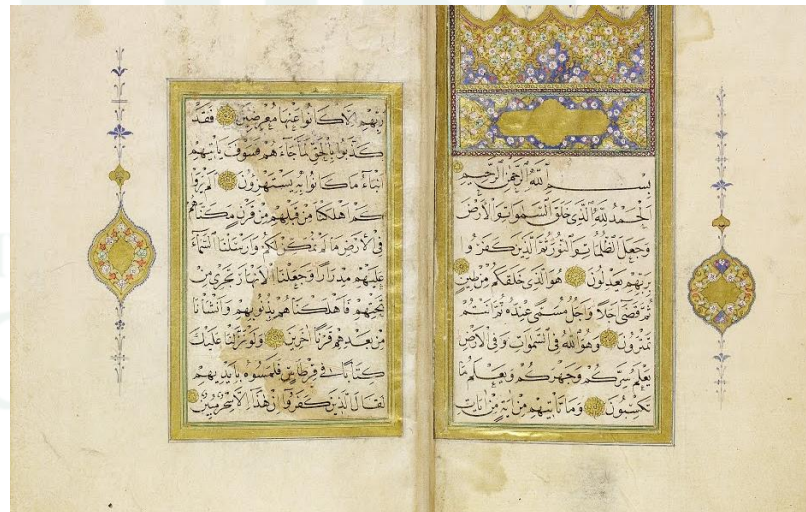 بِسْمِ اللَّهِ الرَّحْمَٰنِ الرَّحِيمِ
الْحَمْدُ لِلَّهِ الَّذِي خَلَقَ السَّمٰوَاتِ وَالْأَرْضَ
وَجَعَلَ الظُّلُمَاتِ وَالنُّورَ ثُمَّ الَّذِينَ كَفَرُوا
بِرَبِّهِمْ يَعْدِلُونَ هُوَ الَّذِي خَلَقَكُمْ مِنْ طِينٍ
ثُمَّ قَضَى أَجَلًا وَأَجَلٌ مُسَمًّى عِنْدَهُ ثُمَّ أَنْتُمْ
تَمْتَرُونَ وَهُوَ اللَّهُ فِي السَّمٰوَاتِ وَفِي الْأَرْضِ
يَعْلَمُ سِرَّكُمْ وَجَهْرَكُمْ وَيَعْلَمُ مَا
تَكْسِبُونَ وَمَا تَأْتِيهِمْ مِنْ آيَةٍ مِنْ آيَاتِ
رَبِّهِمْ إِلَّا كَانُوا عَنْهَا مُعْرِضِينَ فَقَدْ
كَذَّبُوا بِالْحَقِّ لَمَّا جَاءَهُمْ فَسَوْفَ يَأْتِيهِمْ
أَنْبَاءُ مَا كَانُوا بِهِ يَسْتَهْزِؤُنَ أَلَمْ يَرَوْا
كَمْ أَهْلَكْنَا مِنْ قَبْلِهِمْ مِنْ قَرْنٍ مَكَّنَّاهُمْ
فِي الْأَرْضِ مَا لَمْ نُمَكِّنْ لَكُمْ وَأَرْسَلْنَا السَّمَاءَ
عَلَيْهِمْ مِدْرَارًا وَجَعَلْنَا الْأَنْهَارَ تَجْرِي مِنْ
تَحْتِهِمْ فَأَهْلَكْنَاهُمْ بِذُنُوبِهِمْ وَأَنْشَأْنَا
مِنْ بَعْدِهِمْ قَرْنًا آخَرِينَ وَلَوْ نَزَّلْنَا عَلَيْكَ
كِتَابًا فِي قِرْطَاسٍ فَلَمَسُوهُ بِأَيْدِيهِمْ
لَقَالَ الَّذِينَ كَفَرُوا إِنْ هَذَا إِلَّا سِحْرٌ مُبِينٌ